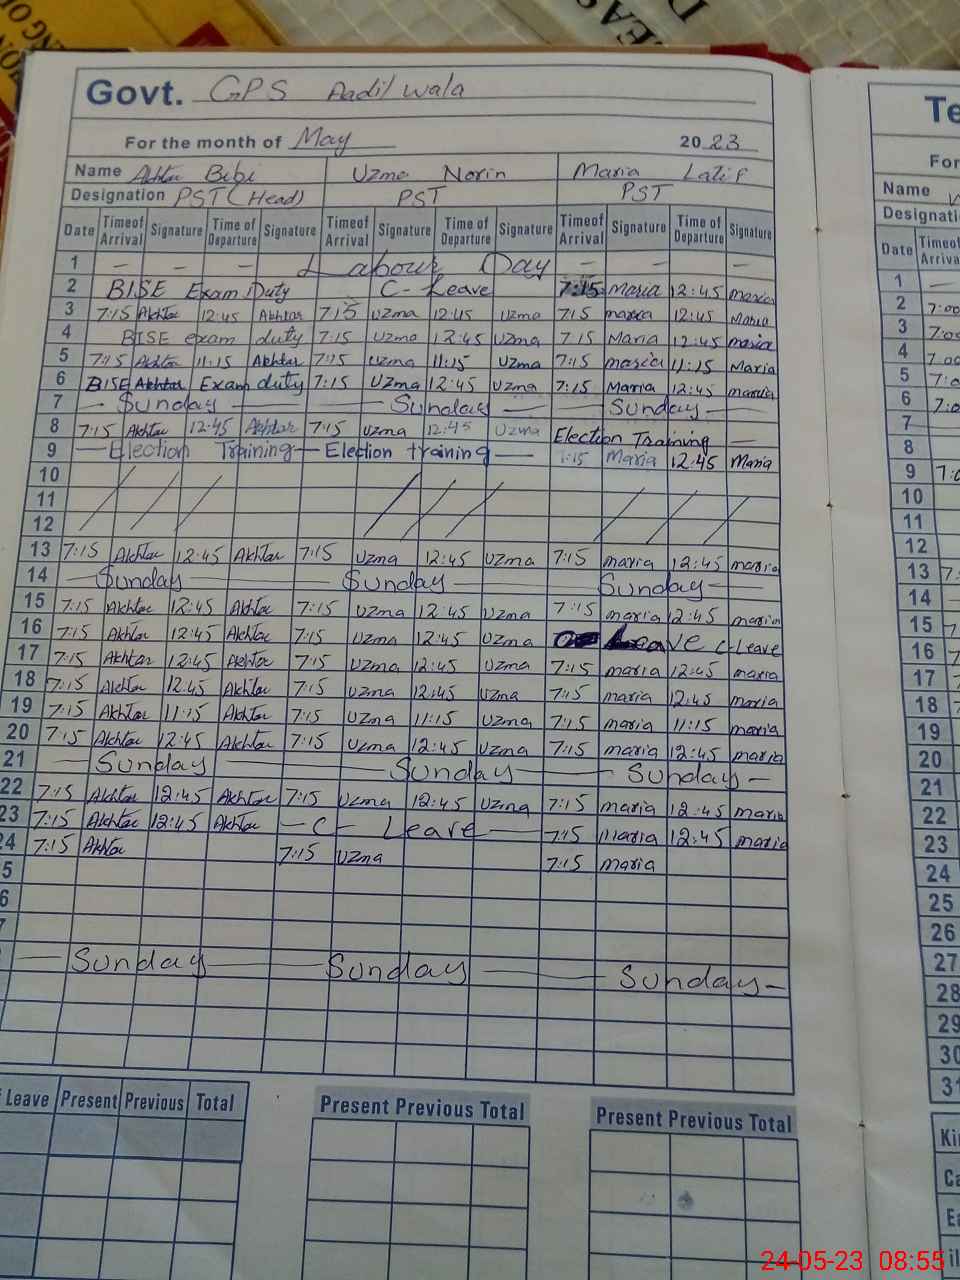 Govt. GPS Aadil wala
For the month of May 20 23
Name Akhtar Bibi Uzma Norin Maria Latif
Designation PST (Head) PST PST
Date Time of Arrival Signature Time of Departure Signature Time of Arrival Signature Time of Departure Signature Time of Arrival Signature Time of Departure Signature
1 — — — Labour Day — — —
2 BISE Exam Duty C- Leave 7:15 Maria 12:45 maria
3 7:15 Akhtar 12:45 Akhtar 7:15 Uzma 12:45 Uzma 7:15 maria 12:45 Maria
4 BISE exam duty 7:15 Uzma 12:45 Uzma 7:15 Maria 12:45 maria
5 7:15 Akhtar 11:15 Akhtar 7:15 Uzma 11:15 Uzma 7:15 maria 11:15 Maria
6 BISE Exam duty 7:15 Uzma 12:45 Uzma 7:15 Maria 12:45 maria
7 — Sunday — — Sunday — — Sunday —
8 7:15 Akhtar 12:45 Akhtar 7:15 Uzma 12:45 Uzma Election Training —
9 — Election Training — Election training — 7:15 Maria 12:45 Maria
10
11
12
13 7:15 Akhtar 12:45 Akhtar 7:15 Uzma 12:45 Uzma 7:15 maria 12:45 maria
14 — Sunday — Sunday — Sunday —
15 7:15 Akhtar 12:45 Akhtar 7:15 Uzma 12:45 Uzma 7:15 maria 12:45 maria
16 7:15 Akhtar 12:45 Akhtar 7:15 Uzma 12:45 Uzma Leave C-Leave
17 7:15 Akhtar 12:45 Akhtar 7:15 Uzma 12:45 Uzma 7:15 maria 12:45 maria
18 7:15 Akhtar 12:45 Akhtar 7:15 Uzma 12:45 Uzma 7:15 maria 12:45 maria
19 7:15 Akhtar 11:15 Akhtar 7:15 Uzma 11:15 Uzma 7:15 maria 11:15 maria
20 7:15 Akhtar 12:45 Akhtar 7:15 Uzma 12:45 Uzma 7:15 maria 12:45 maria
21 — Sunday — Sunday — Sunday —
22 7:15 Akhtar 12:45 Akhtar 7:15 Uzma 12:45 Uzma 7:15 maria 12:45 maria
23 7:15 Akhtar 12:45 Akhtar — C- Leave — 7:15 maria 12:45 maria
24 7:15 Akhtar 7:15 Uzma 7:15 maria
5
6
7
— Sunday — Sunday — Sunday —
Leave Present Previous Total Present Previous Total Present Previous Total
Te
For
Name
Designati
Date Timeof Arriva
1 —
2 7:00
3 7:00
4 7:00
5 7:0
6 7:0
7
8
9 7:0
10
11
12
13 7:
14 —
15 7
16 7
17 7
18 7
19
20
21
22
23
24
25
26
27
28
29
30
31
Ki
Ca
Ea
24-05-23 08:55